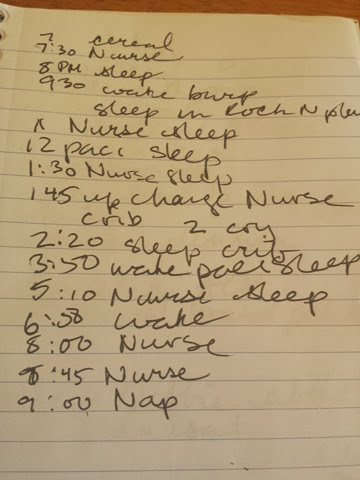 7 cereal
7:30 Nurse
8 PM sleep
930 wake burp
sleep in Rock N play
11 Nurse sleep
12 paci sleep
1:30 Nurse sleep
145 up change Nurse
crib 2 cry
2:20 sleep crib
3:50 wake paci sleep
5:10 Nurse sleep
6:58 wake
8:00 Nurse
8:45 Nurse
9:00 Nap